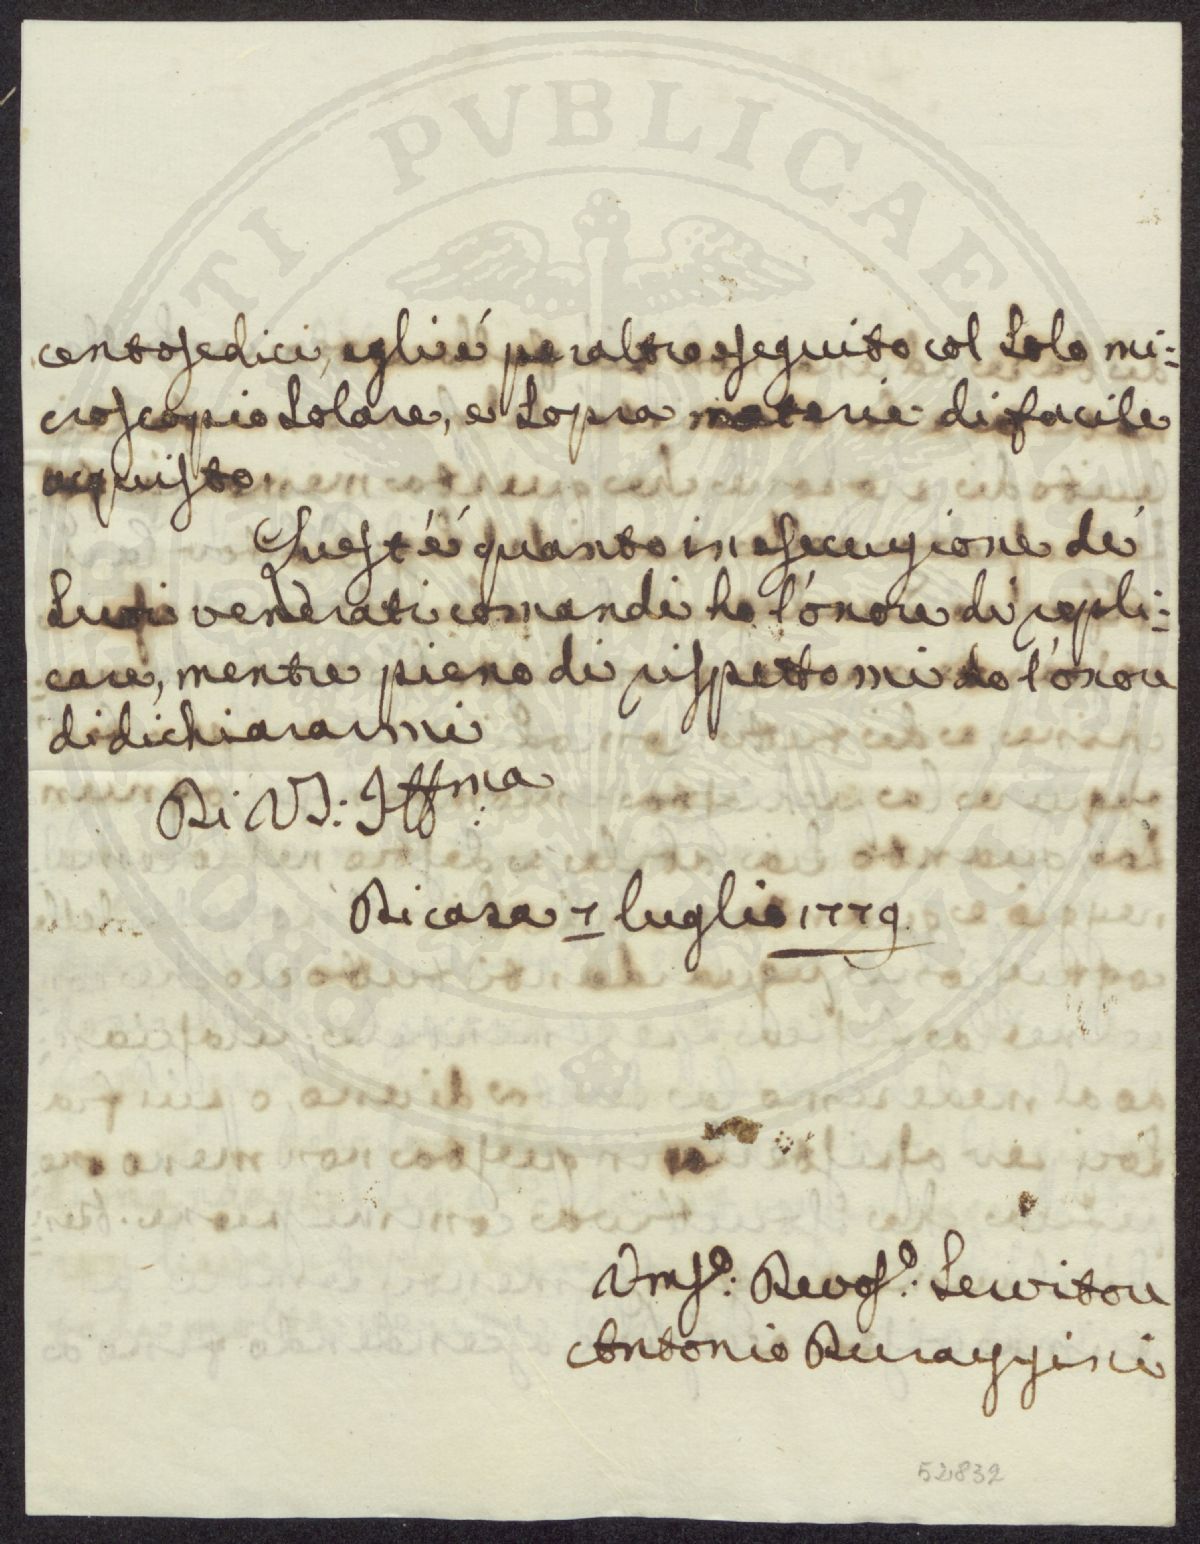 centosedici, egli é peraltro eseguito col solo mi:
croscopio solare, e sopra materie di facile
acquisto.
Quest'é quanto in esecuzione de'
suoi venerati comandi ho l'onore di repli:
care, mentre pieno di rispetto mi do l'onore
di dichiararmi
Di VS: Illma
Di casa 7 luglio 1779
Umso: Devoso: Servitore
Antonio Durazzini
52832
PVBLICAE